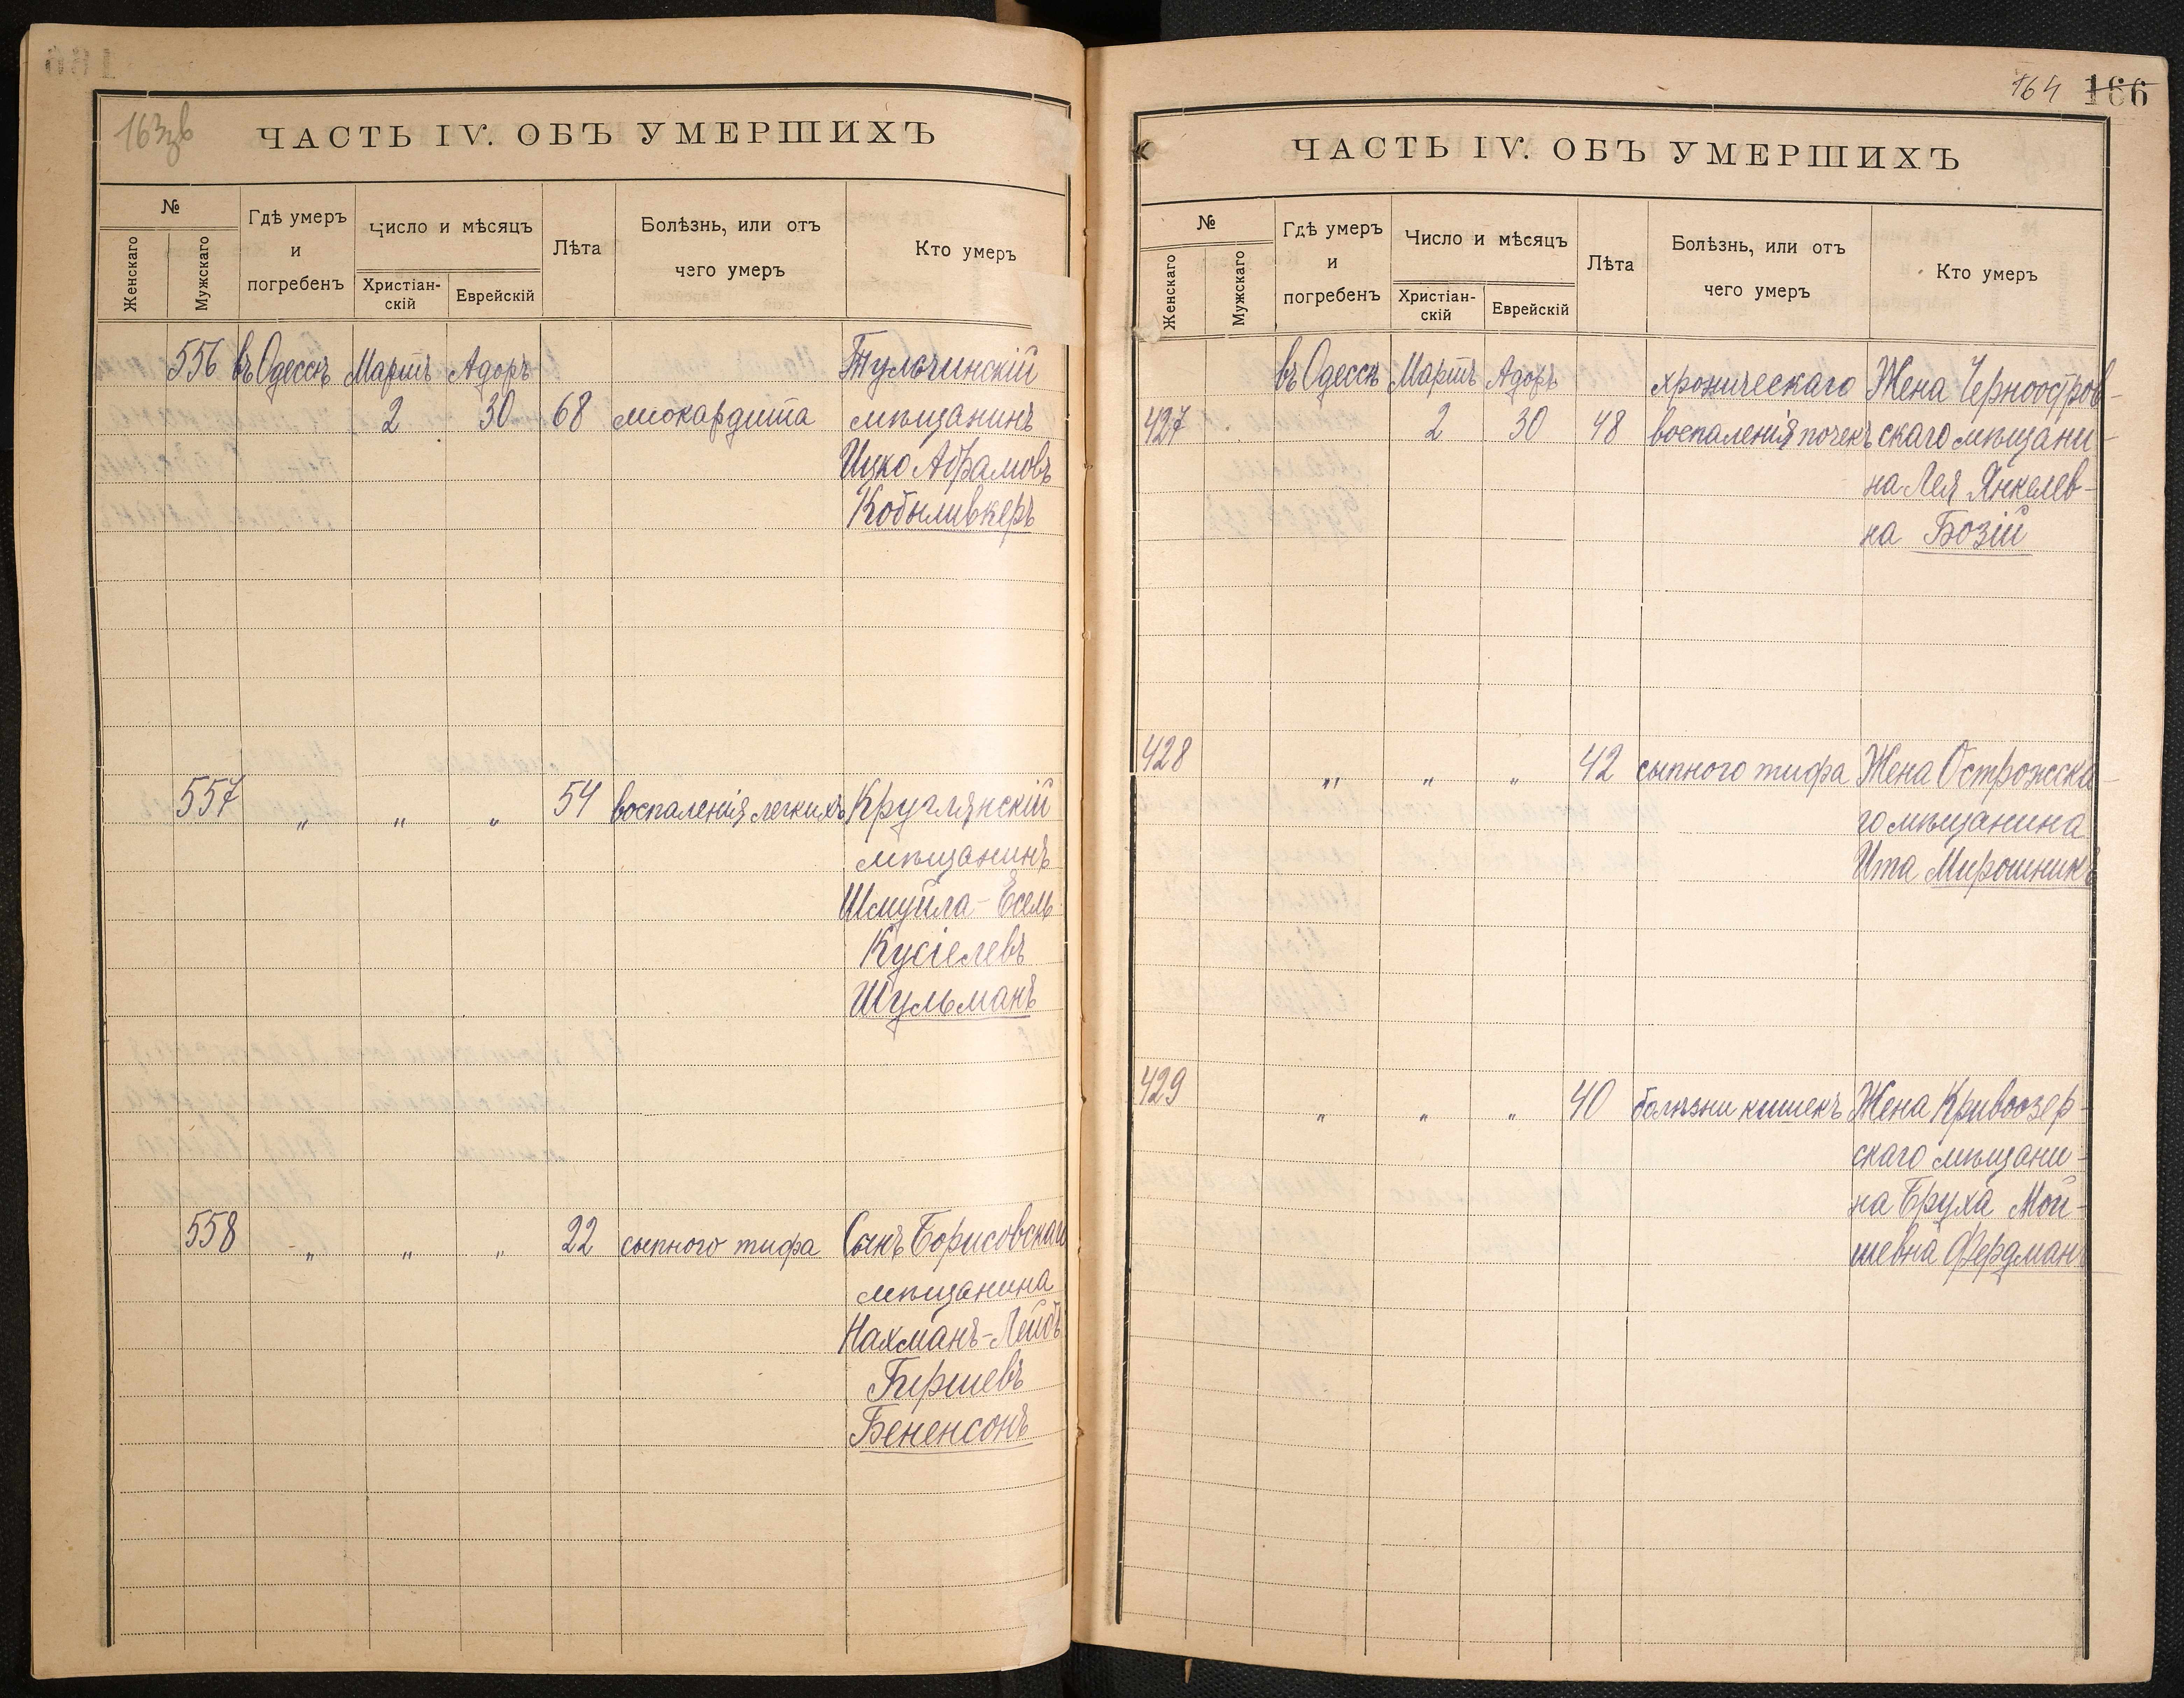 163зв
ЧАСТЬ IV. ОБЪ УМЕРШИХЪ
№
Женскаго
Мужскаго
Гдѣ умеръ
и
погребенъ
Число и мѣсяцъ
Христіан-
скій
Еврейскій
Лѣта
Болѣзнь, или отъ
чего умеръ
Кто умеръ
556 въ Одессѣ Мартъ Адоръ Тульчинскій
2 30 68 міокардита мѣщанинъ
Ицко Абрамовъ
Кобыливкеръ
557 „ „ „ 54 воспаленія легкихъ Круглянскій
мѣщанинъ
Шмуйла-Есель
Кусіелевъ
Шульманъ
558 „ „ „ 22 сыпного тифа Сынъ Борисовскаго
мѣщанина
Нахманъ-Лейбъ
Гиршевъ
Бененсонъ
164 166
ЧАСТЬ IV. ОБЪ УМЕРШИХЪ
№
Женскаго
Мужскаго
Гдѣ умеръ
и
погребенъ
Число и мѣсяцъ
Христіан-
скій
Еврейскій
Лѣта
Болѣзнь, или отъ
чего умеръ
Кто умеръ
въ Одессѣ Мартъ Адоръ хроническаго Жена Черноостров-
427 2 30 48 воспаленія почекъ скаго мѣщани-
на Лея Янкелев-
на Бозій
428 „ „ „ 42 сыпного тифа Жена Острожска-
го мѣщанина
Ита Мирошникъ
429 „ „ „ 40 болѣзни кишекъ Жена Кривоозер-
скаго мѣщани-
на Бруха Мой-
шевна Фердманъ